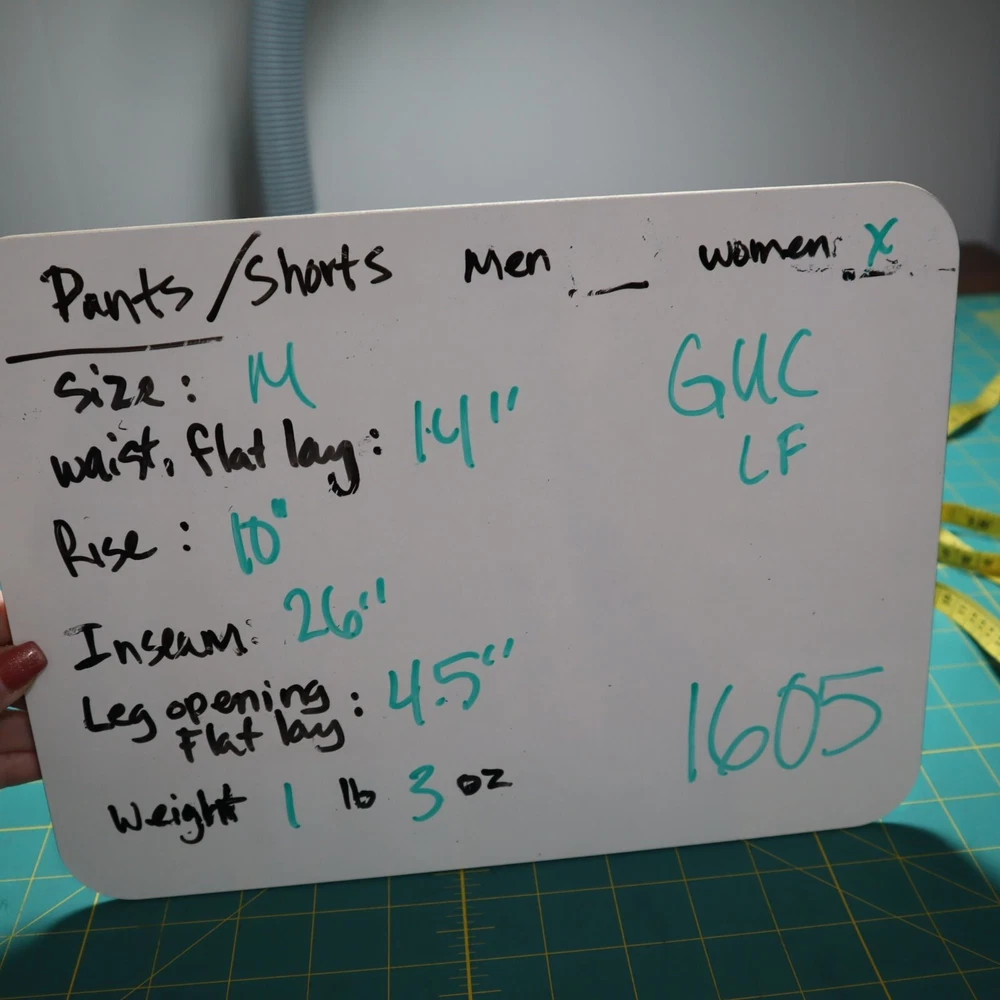 Pants/Shorts Men __ women: X
Size: M
GUC
waist, flat lay: 14"
LF
Rise: 10"
Inseam: 26"
Leg opening: 4.5"
Flat lay
1605
Weight 1 lb 3 oz